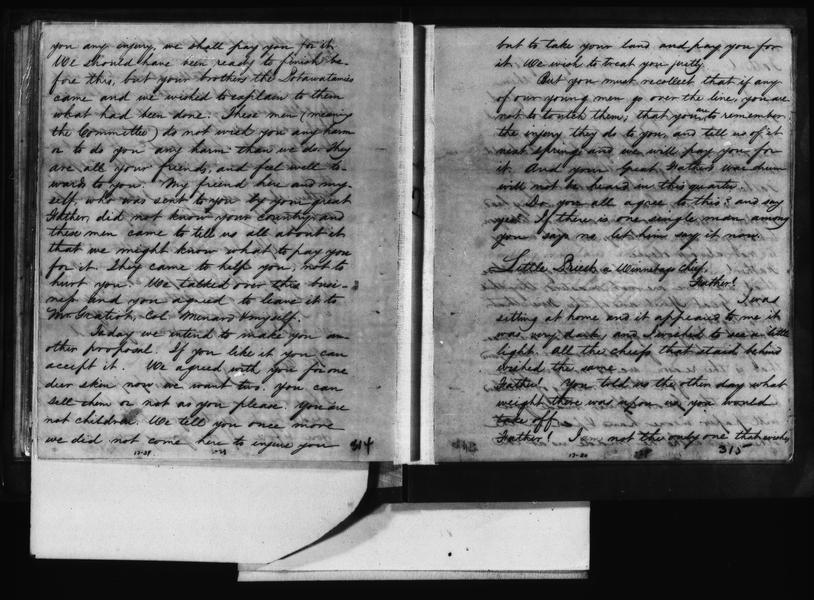 you any injury, we shall pay you for it.
We should have been ready to finish be-
fore this, but your brothers the Potawatamies
came and we wished to explain to them
what had been done. These men (meaning
the Committee) do not wish you any harm
or to do you any harm than we do. They
are all your friends, and feel well to-
wards to you. My friend here and my-
self, who was sent to you by your great
Father, did not know your country, and
these men came to tell us all about it
that we might know what to pay you
for it. They came to help you, not to
hurt you. We talked over this busi-
ness and you agreed to leave it to
Mr. Gratiot, Col. Menard & myself.
Today we intend to make you an-
other proposal. If you like it you can
accept it. We agreed with you for one
deer skin now we want two. You can
sell them or not as you please. You are
not children. We tell you once more
we did not come here to injure you
314
but to take your land and pay you for
it. We wish to treat you justly.
But you must recollect that if any
of our young men go over the line, you are
not to touch them; that you are to remember
the injury they do to you, and tell us of it
next spring and we will pay you for
it. And your Great Father's war drum
will not be heard in this quarter.
Do you all agree to this? and say
yes? If there is one single man among
you says no, let him say it now.
Little Priest a Winnebago chief,
Father!
I was
sitting at home and it appeared to me it
was very dark, and I wished to see a little
light. All the chiefs that staid behind
wished the same.
Father! You told us the other day what
weight there was upon us, you would
take off.
Father! I am not the only one that
315